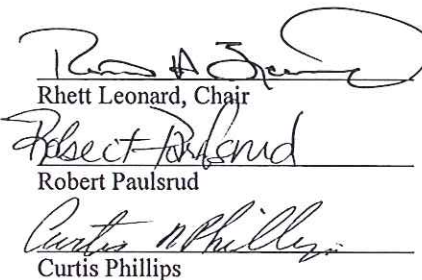 Rhett Leonard, Chair
Robert Paulsrud
Robert Paulsrud
Curtis N Phillips
Curtis Phillips